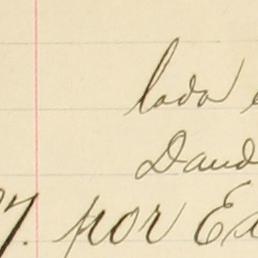 lado
Daud
7. por Ed